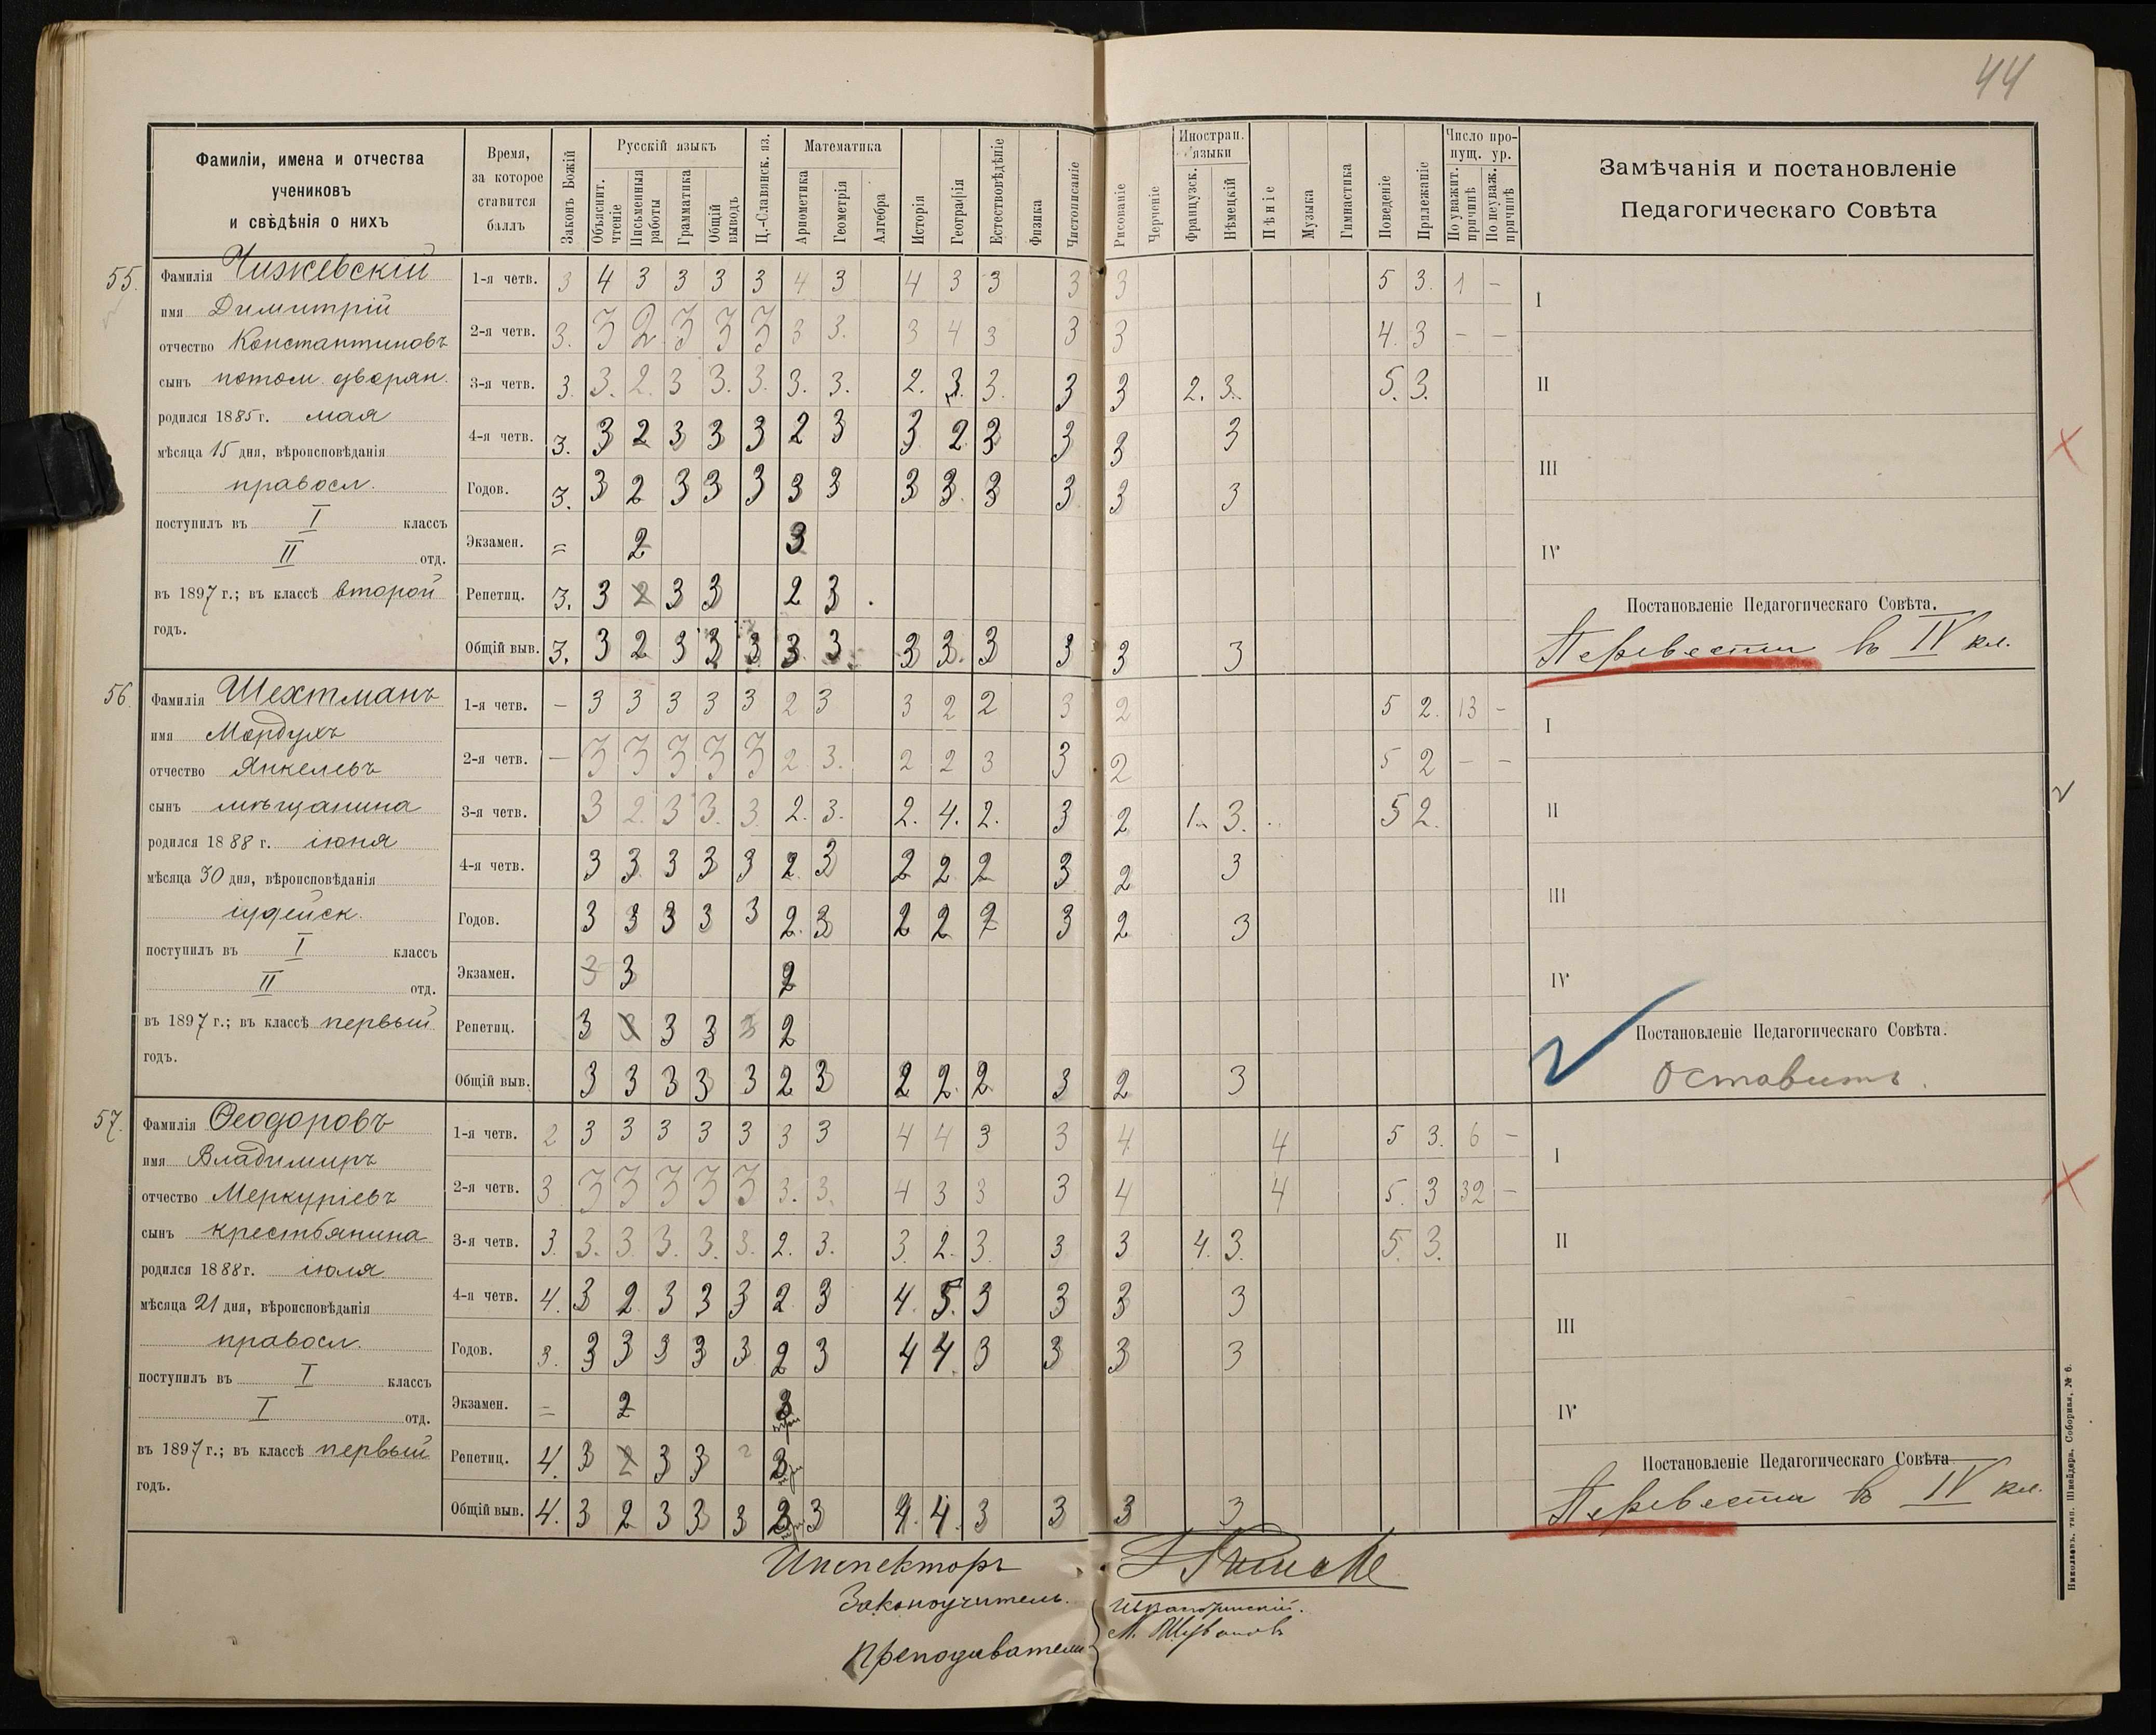 44
Фамиліи, имена и отчества
учениковъ
и свѣдѣнія о нихъ
Время,
за которое
ставится
баллъ
Законъ Божій
Русскій языкъ
Объяснит. чтеніе
Письменныя работы
Грамматика
Общій выводъ
Ц.-Славянск. яз.
Математика
Ариѳметика
Геометрія
Алгебра
Исторія
Географія
Естествовѣдѣніе
Физика
Чистописаніе
Рисованіе
Черченіе
Иностран. языки
Французск.
Нѣмецкій
Пѣніе
Музыка
Гимнастика
Поведеніе
Прилежаніе
Число пропущ. ур.
По уважит. причинѣ
По неуваж. причинѣ
Замѣчанія и постановленіе
Педагогическаго Совѣта
55.
Фамилія Чижевскій
имя Димитрій
отчество Константиновъ
сынъ потом. дворян.
родился 1885 г. мая
мѣсяца 15 дня, вѣроисповѣданія
правосл.
поступилъ въ I классъ
II отд.
въ 1897 г.; въ классѣ второй
годъ.
1-я четв. 3 4 3 3 3 3 4 3 4 3 3 3 3 5 3. 1 -
2-я четв. 3. 3 2 3 3 3 3 3. 3 4 3 3 3 4. 3 - -
3-я четв. 3. 3. 2. 3 3. 3. 3. 3. 2. 3. 3. 3 3 2. 3. 5. 3.
4-я четв. 3. 3 2 3 3 3 2 3 3 2 3 3 3 3
Годов. 3. 3 2 3 3 3 3 3 3 3. 3 3 3 3
Экзамен. = 2 3
Репетиц. 3. 3 2 3 3 2 3 .
Общій выв. 3. 3 2 3 3 3 3. 3 3 3. 3 3 3 3
I
II
III
IV
Постановленіе Педагогическаго Совѣта.
Перевести въ IV кл.
56.
Фамилія Шехтманъ
имя Мордухъ
отчество Янкелевъ
сынъ мѣщанина
родился 1888 г. іюня
мѣсяца 30 дня, вѣроисповѣданія
іудейск.
поступилъ въ I классъ
II отд.
въ 1897 г.; въ классѣ первый
годъ.
1-я четв. - 3 3 3 3 3 2 3 3 2 2 3 2 5 2. 13 -
2-я четв. - 3 3 3 3 3 2. 3. 2 2 3 3 2 5 2 - -
3-я четв. 3 2. 3 3. 3. 2. 3. 2. 4. 2. 3 2 1. 3. 5 2.
4-я четв. 3 3 3 3 3 2 3 2 2 2 3 2 3
Годов. 3 3 3 3 3 2. 3 2 2 2 3 2 3
Экзамен. 3 3 2
Репетиц. 3 3 3 3 3 2
Общій выв. 3 3 3 3 3 2 3 2 2. 2 3 2 3
I
II
III
IV
Постановленіе Педагогическаго Совѣта.
Оставить.
57.
Фамилія Ѳеодоровъ
имя Владимиръ
отчество Меркуріевъ
сынъ крестьянина
родился 1888 г. іюля
мѣсяца 21 дня, вѣроисповѣданія
правосл.
поступилъ въ I классъ
I отд.
въ 1897 г.; въ классѣ первый
годъ.
1-я четв. 2 3 3 3 3 3 3 3 4 4 3 3 4 4 5 3. 6 -
2-я четв. 3 3 3 3 3 3 3. 3. 4 3 3 3 4 4 5. 3 32 -
3-я четв. 3. 3. 3. 3. 3. 3. 2. 3. 3. 2. 3. 3 3 4. 3. 5. 3.
4-я четв. 4. 3 2 3 3 3 2 3 4. 5. 3 3 3 3
Годов. 3. 3 3 3 3 3 2 3 4 4 3 3 3 3
Экзамен. = 2 3
Репетиц. 4. 3 2 3 3 3
Общій выв. 4. 3 2 3 3 3 3 3 4. 4. 3 3 3 3
I
II
III
IV
Постановленіе Педагогическаго Совѣта
Перевести въ IV кл.
Инспекторъ
Законоучитель.
Преподаватели
Николаевъ, тип. Шнейдера, Соборная, № 6.